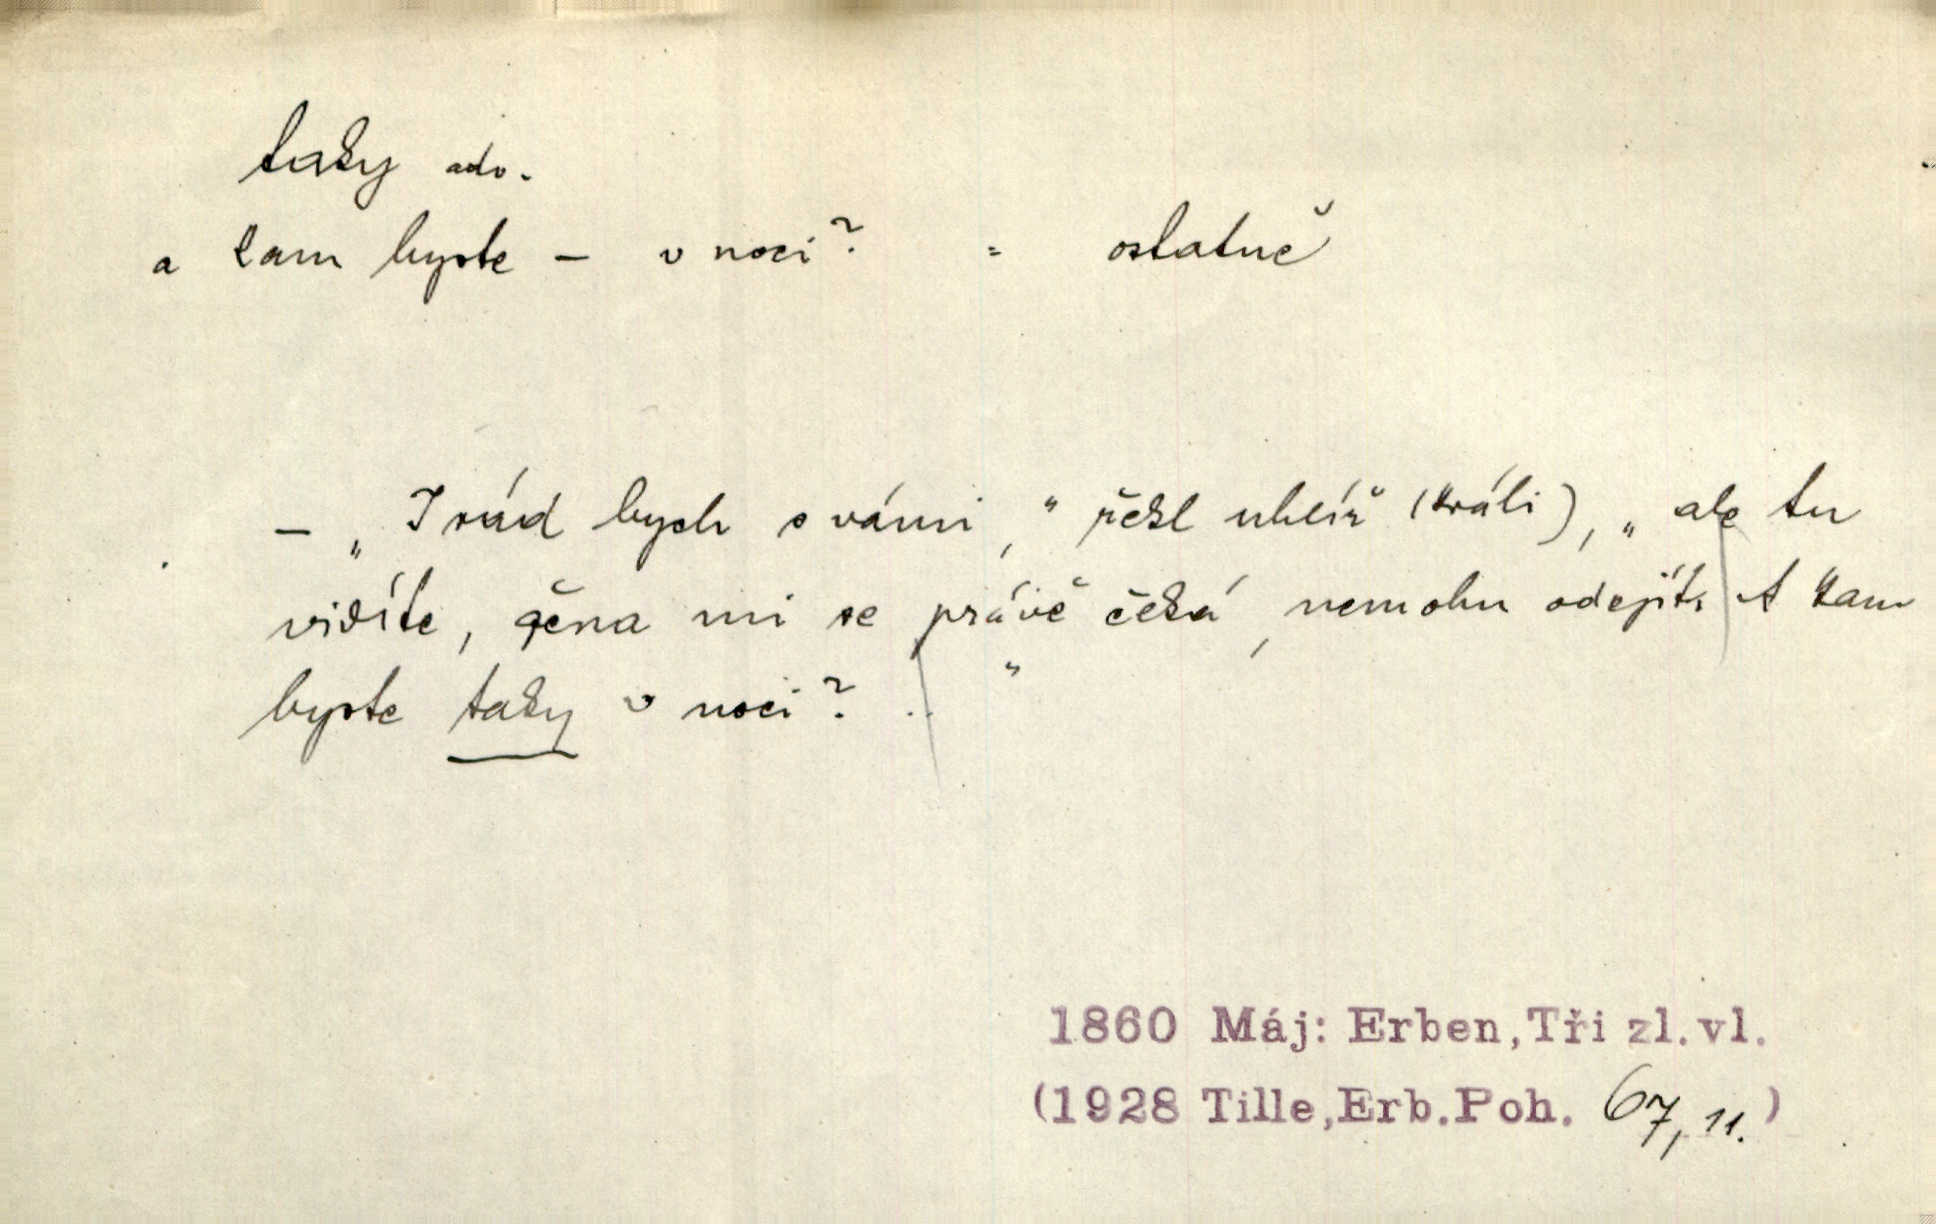 taky adv.
a kam byste – v noci? = ostatně
– „I rád bych s vámi,“ řekl uhlíř (králi), „ale tu
vidíte, žena mi se právě čeká, nemohu odejíti. A kam
byste taky v noci? ..“
1860 Máj: Erben, Tři zl. vl.
(1928 Tille, Erb. Poh. 67, 11.)